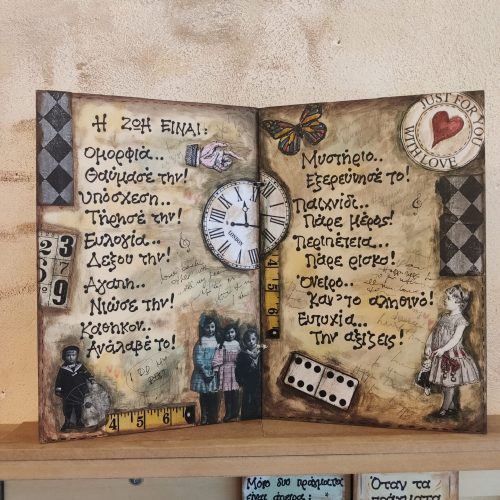 Η ΖΩΗ ΕΙΝΑΙ:
Ομορφιά..
Θαύμασέ την!
Υπόσχεση..
Τήρησέ την!
Ευλογία..
Δέξου την!
Αγάπη..
Νιώσε την!
Καθήκον..
Ανάλαβέ το!
LONDON
2 3
9
4 5
JUST FOR YOU
WITH LOVE
Μυστήριο..
Εξερεύνησέ το!
Παιχνίδι..
Πάρε μέρος!
Περιπέτεια..
Πάρε ρίσκο!
Όνειρο..
Κάν' το αληθινό!
Ευτυχία..
Την αξίζεις!
Μόνο δυο πράγματα
είναι άπειρα:
Όταν τα
πράγματα